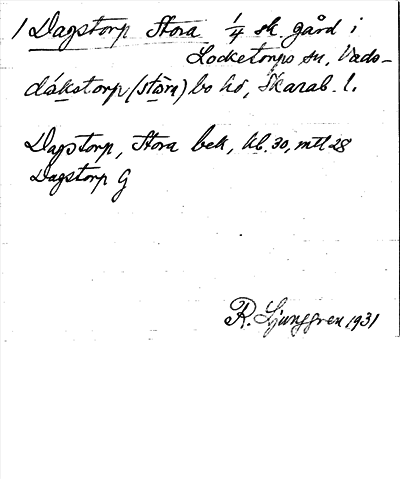 1 Dagstorp Stora 1/4 sk. gård i
Locketorps sn, Vads-
dákstorp (stòra) bo hd, Skarab. l.
Dagstorp, Stora bek, kb. 30, mtl 28
Dagstorp G
R. Ljunggren 1931